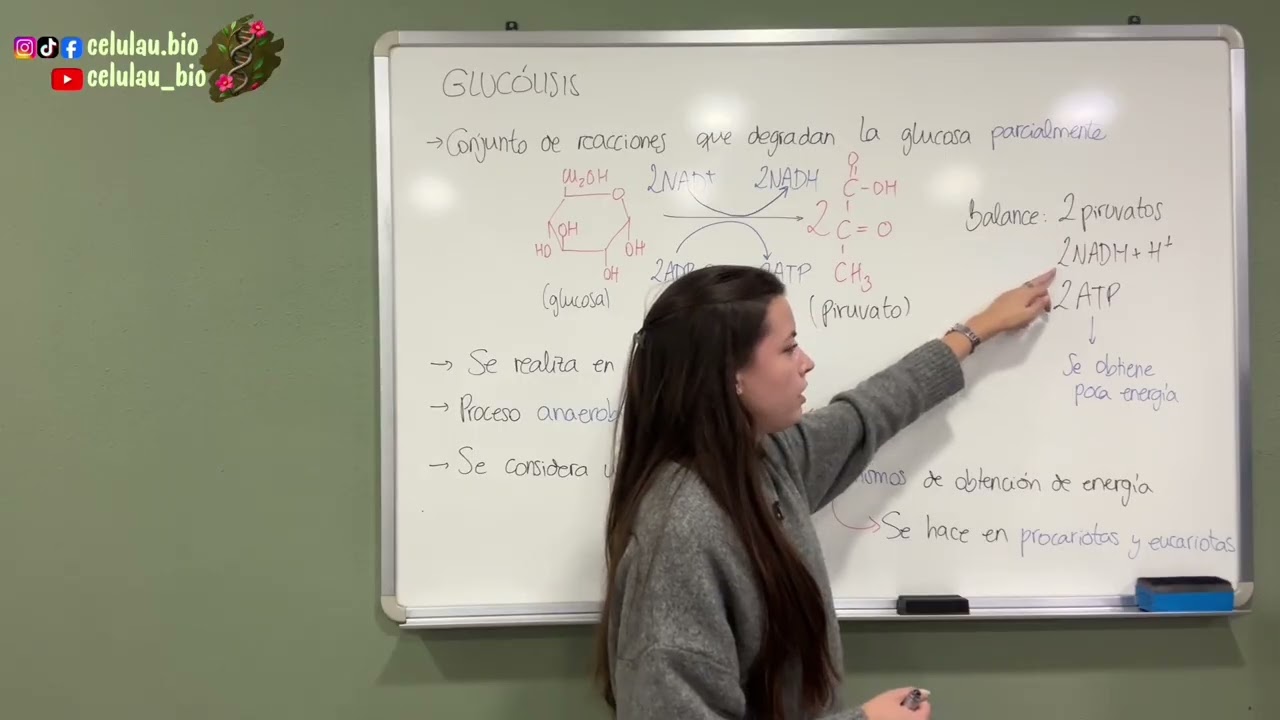 celulau.bio
celulau_bio
GLUCÓLISIS
→ Conjunto de reacciones que degradan la glucosa parcialmente
CH₂OH
O
OH
HO
OH
OH
(glucosa)
2NAD+
2NADH
2ATP
O
C-OH
2
C=O
CH₃
(piruvato)
Balance: 2 piruvatos
2NADH+H⁺
2ATP
↓
Se obtiene
poca energía
→ Se realiza en
→ Proceso
→ Se considera
de obtención de energía
→ Se hace en procariotas y eucariotas